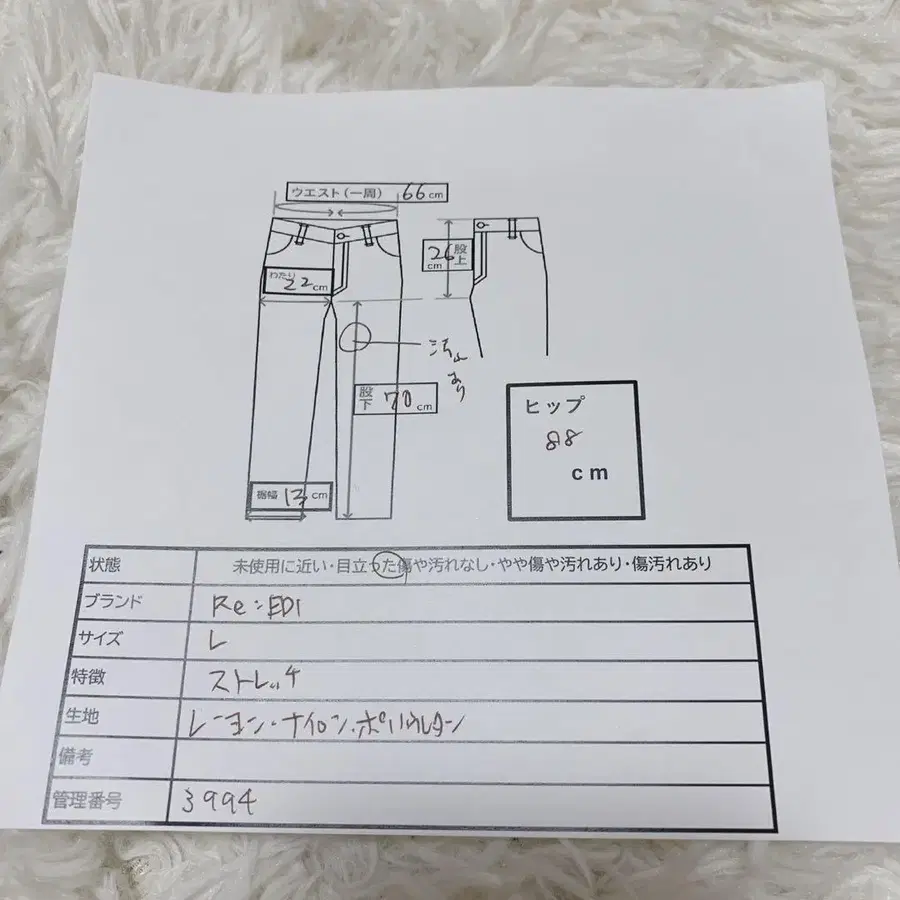 ウエスト(一周) 66 cm
26 cm 股上
わたり 22 cm
汚れ
あり
股下 70 cm
ヒップ
88
cm
裾幅 13 cm
状態 未使用に近い・目立った傷や汚れなし・やや傷や汚れあり・傷汚れあり
ブランド Re:EDI
サイズ L
特徴 ストレッチ
生地 レーヨン・ナイロン・ポリウレタン
備考
管理番号 3994